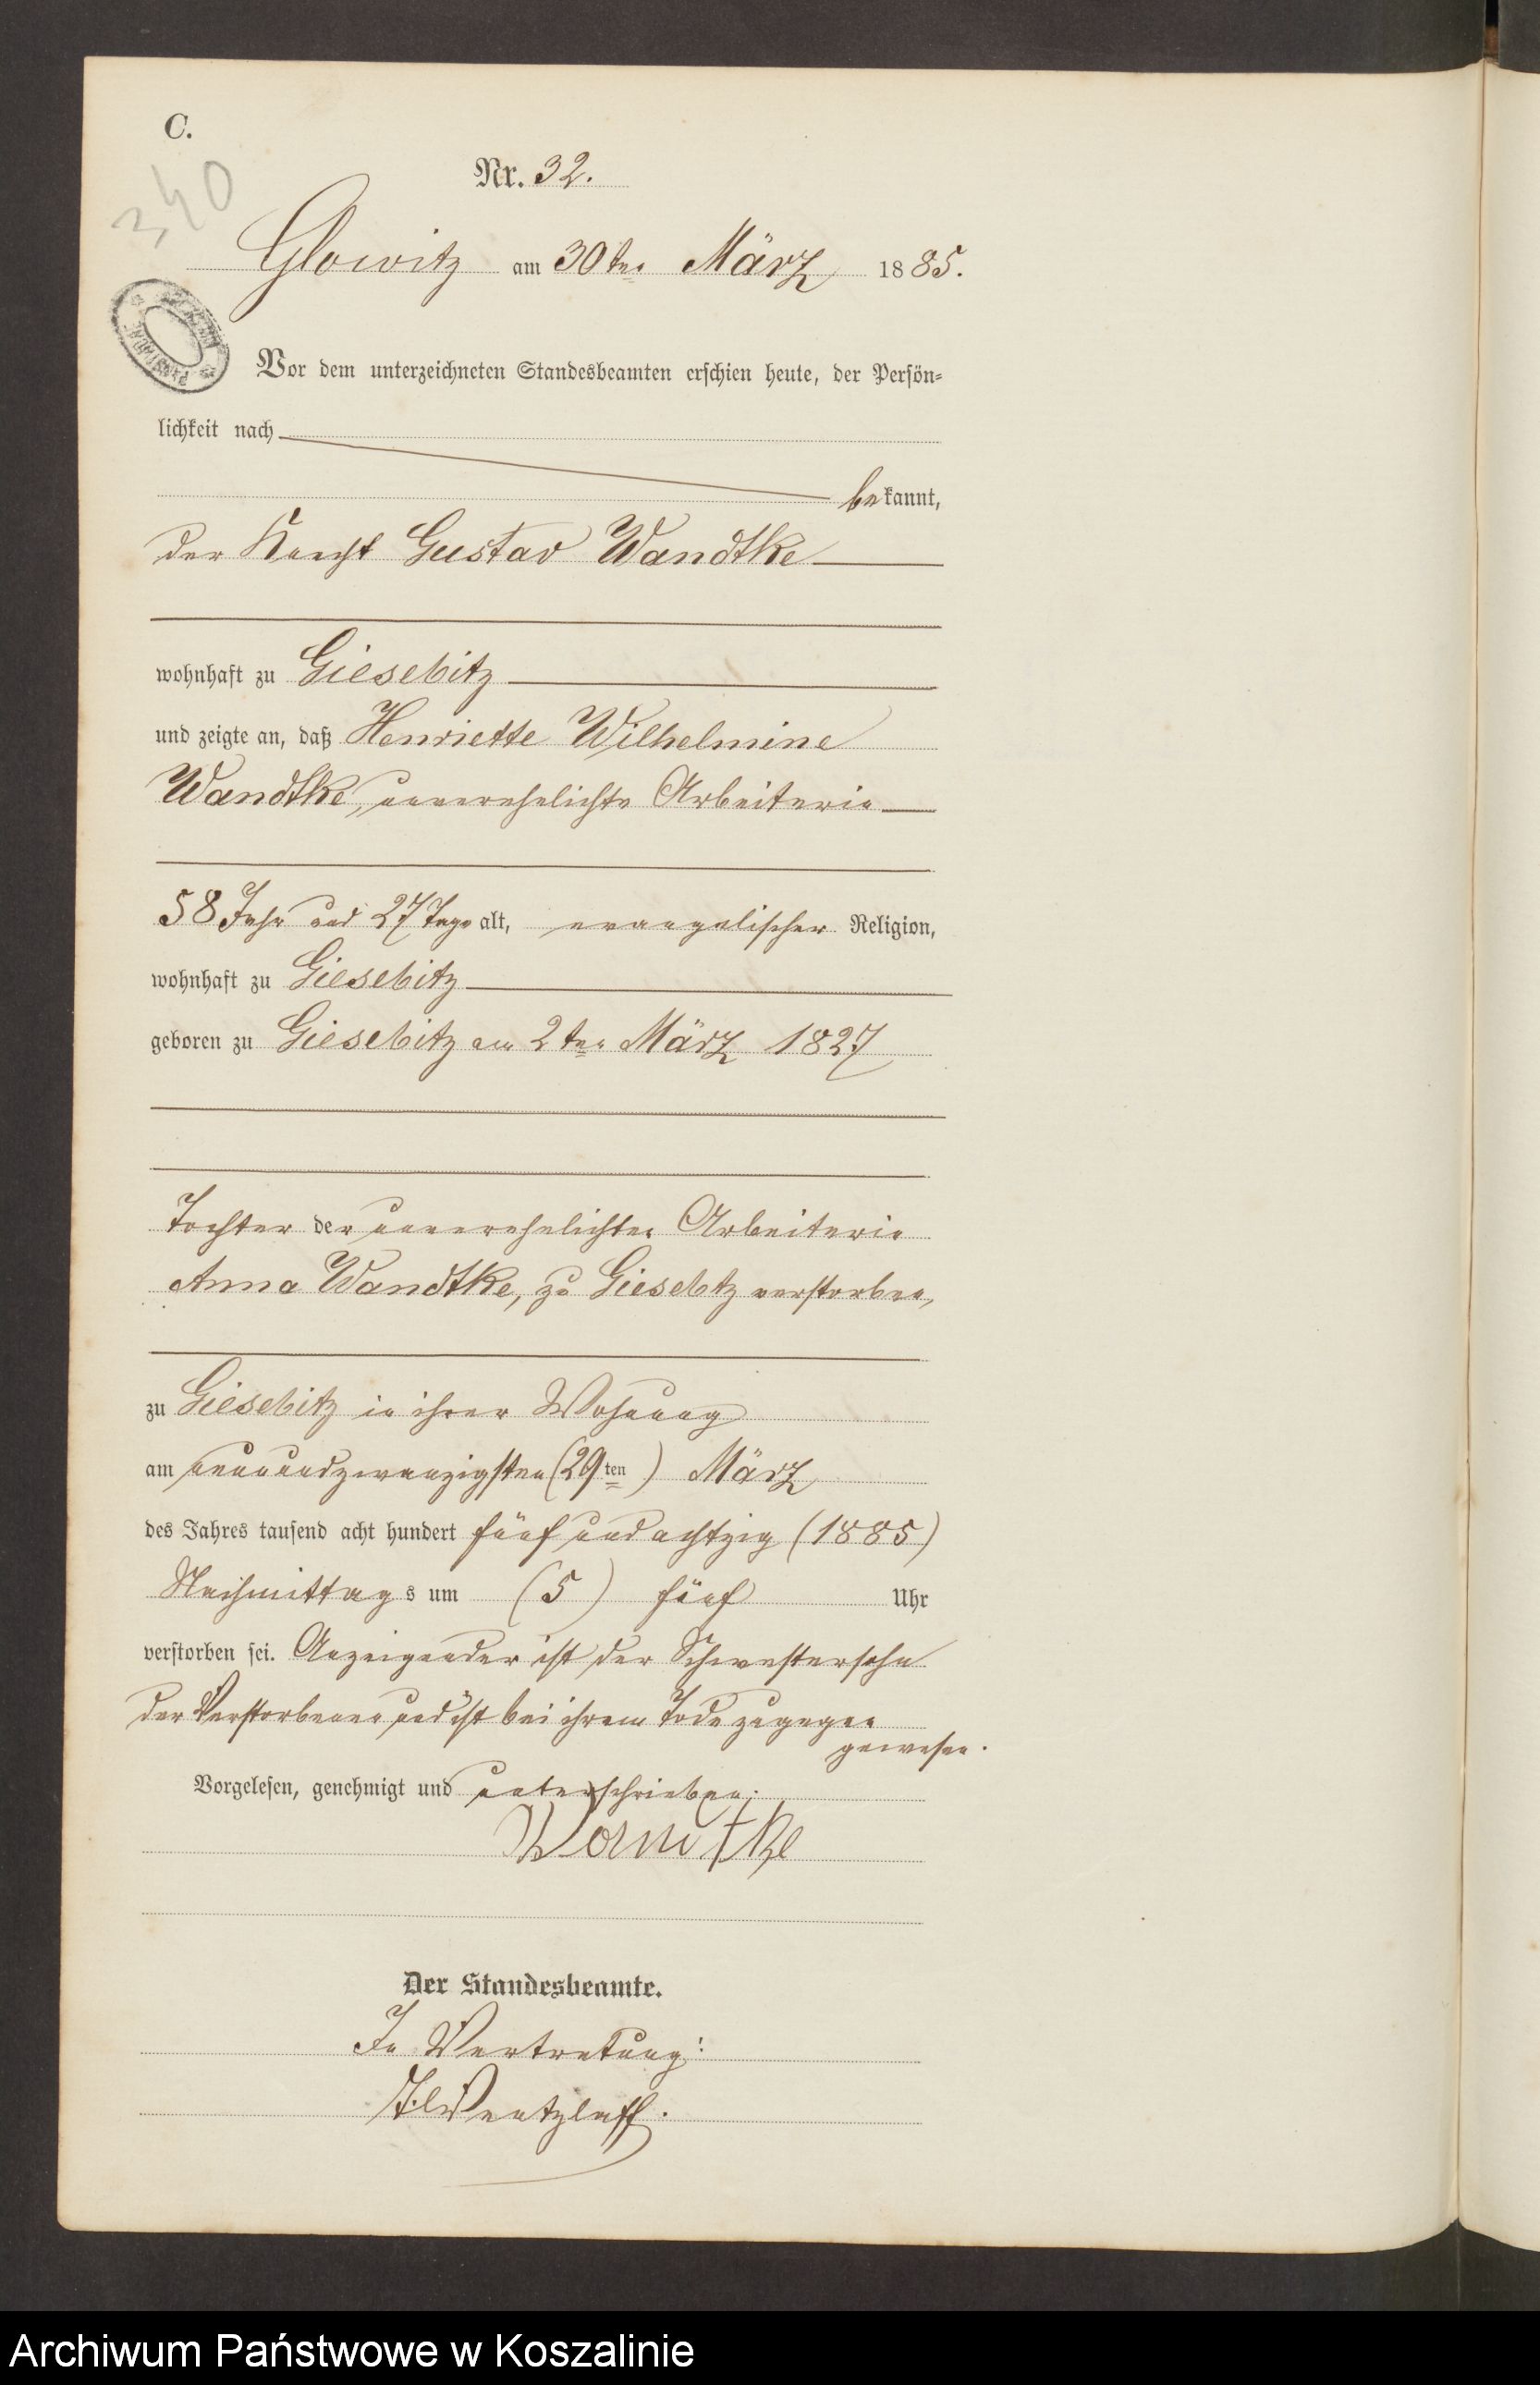 C.
340
Nr. 32.
Glowitz am 30ten März 1885.
Vor dem unterzeichneten Standesbeamten erschien heute, der Persön-
lichkeit nach
bekannt,
der Knecht Gustav Wandtke
wohnhaft zu Giesebitz
und zeigte an, daß Henriette Wilhelmine
Wandtke, unverehelichte Arbeiterin
58 Jahr und 27 Tage alt, evangelischer Religion,
wohnhaft zu Giesebitz
geboren zu Giesebitz am 2ten März 1827
Tochter der unverehelichten Arbeiterin
Anna Wandtke, zu Giesebitz verstorben,
zu Giesebitz in ihrer Wohnung
am neunundzwanzigsten (29ten) März
des Jahres tausend acht hundert fünf und achtzig (1885)
Nachmittags um (5) fünf Uhr
verstorben sei. Anzeigender ist der Schwestersohn
der Verstorbenen und ist bei ihrem Tode zugegen
gewesen.
Vorgelesen, genehmigt und unterschrieben.
Der Standesbeamte.
In Vertretung:
Wentzlaff.
Archiwum Państwowe w Koszalinie